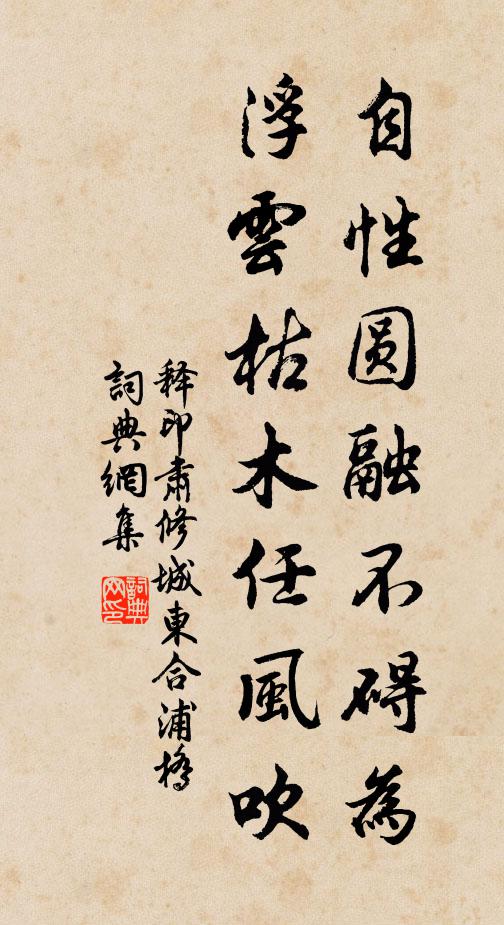 自性圆融不碍為
浮雲枯木任風吹
释印肅修城東合浦橋
詞典網集
詞典網印